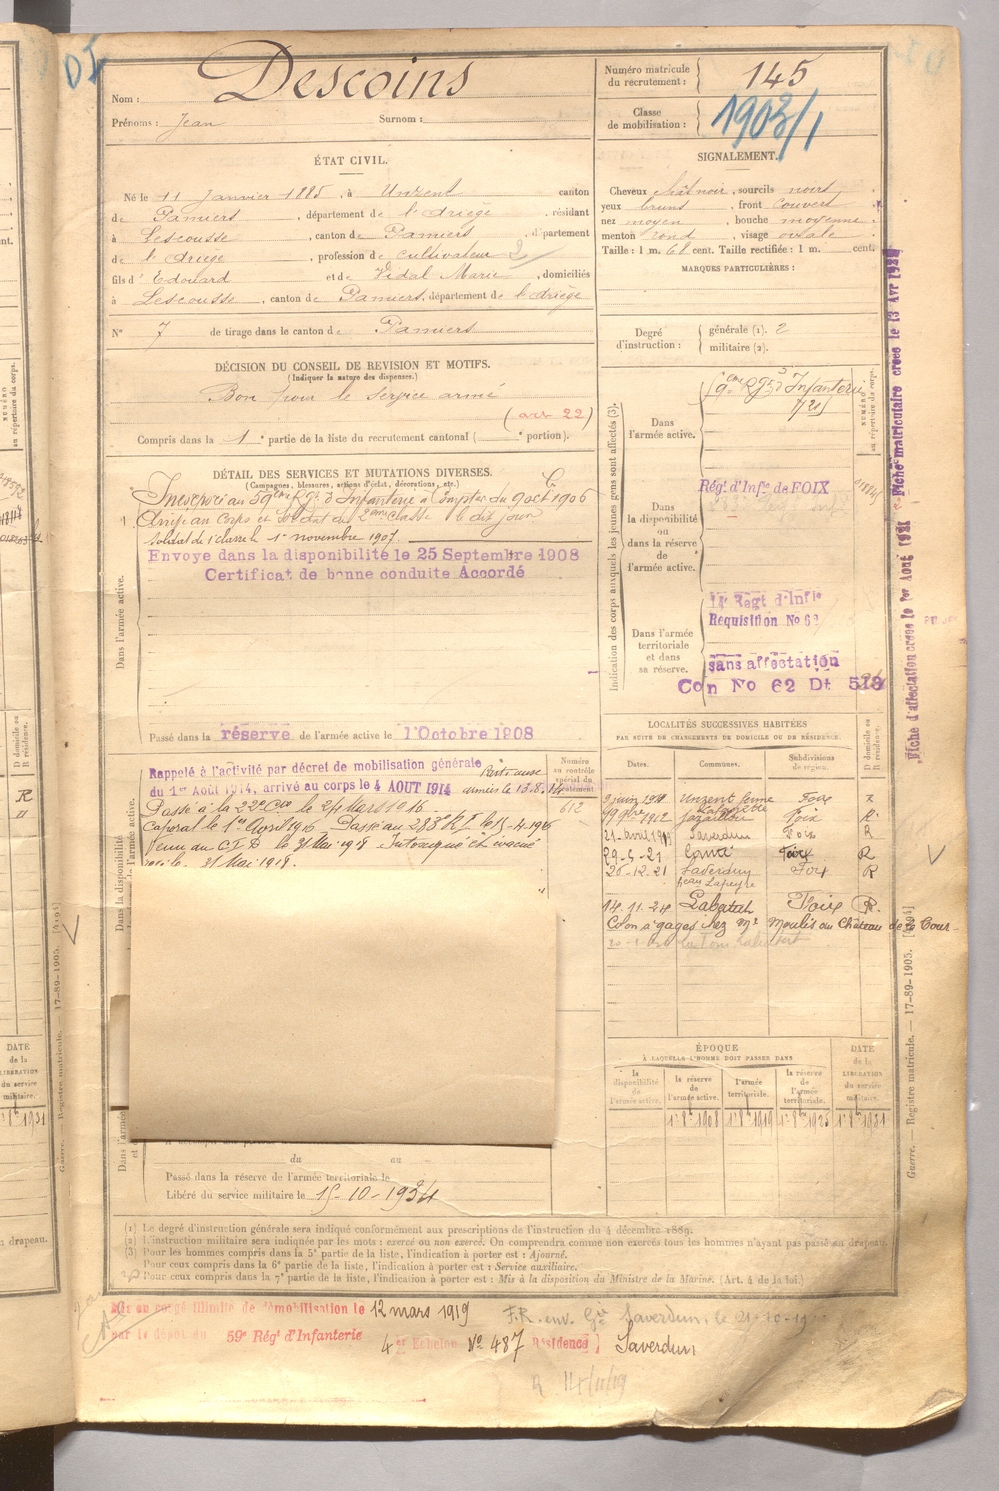 DI
Nom : Descoins
Prénoms : Jean Surnom :
Numéro matricule du recrutement : 145
Classe de mobilisation : 1903/1
ÉTAT CIVIL.
Né le 11 Janvier 1885, à Unzent canton
de Pamiers, département de l'Ariège, résidant
à Lescousse, canton de Pamiers, département
de l'Ariège, profession de cultivateur 2
fils d'Edouard et de Vidal Marie, domiciliés
à Lescousse, canton de Pamiers, département de l'Ariège
N° 7 de tirage dans le canton de Pamiers
SIGNALEMENT.
Cheveux chât noir, sourcils noirs
yeux bruns, front couvert
nez moyen, bouche moyenne
menton rond, visage ovale
Taille : 1 m. 68 cent. Taille rectifiée : 1 m. cent.
MARQUES PARTICULIÈRES :
Degré d'instruction : générale (1). 2
militaire (2).
DÉCISION DU CONSEIL DE REVISION ET MOTIFS.
(Indiquer la nature des dispenses.)
Bon pour le service armé
(art 22)
Compris dans la 1e partie de la liste du recrutement cantonal ( e portion).
DÉTAIL DES SERVICES ET MUTATIONS DIVERSES.
(Campagnes, blessures, actions d'éclat, décorations, etc.)
Incorporé au 59eme Rgt d'Infanterie à Compter du 9 oct 1906
Arrivé au corps et Soldat de 2eme classe le dit jour
Soldat de 1e classe le 1er novembre 1907.
Envoye dans la disponibilité le 25 Septembre 1908
Certificat de bonne conduite Accordé
Dans l'armée active.
Passé dans la réserve de l'armée active le 1 Octobre 1908
Indication des corps auxquels les jeunes gens sont affectés (3).
NUMÉRO au répertoire du corps.
Dans l'armée active.
59eme Rgt d'Infanterie
Dans la disponibilité ou dans la réserve de l'armée active.
Régt d'Infie de FOIX
Dans l'armée territoriale et dans sa réserve.
14e Regt d'Infie
Requisition No 62
sans affectation
Con No 62 Dt 513
Fiche matriculaire créée le 13 Avr
Fiche d'affectation créée le 1er Août
Dans la disponibilité
l'armée active.
Numéro au contrôle spécial du recrutement
612
Rappelé à l'activité par décret de mobilisation générale
du 1er Août 1914, arrivé au corps le 4 AOUT 1914 armées le 13.8.14
Passé à la 22e Cie le 24 Mars 1916
Caporal le 1er Avril 1916 - Passé au 283 R I le 15-4-1916
Venu au C I D le 31 Mai 1918 Intoxiqué et évacué
31 Mai 1918.
LOCALITÉS SUCCESSIVES HABITÉES
PAR SUITE DE CHANGEMENTS DE DOMICILE OU DE RÉSIDENCE.
Dates. Communes. Subdivisions de région. D domicile ou R résidence.
9 juin 1911 Unzent ferme Foix R
1912 Foix R
21 avril Saverdun Foix R
29-5-21 Foix R
26-12-21 Saverdun Foix R
14.11.24 Labatut Foix R.
Colon à gages chez Mr Moulis au Château de la Cour
ÉPOQUE
À LAQUELLE L'HOMME DOIT PASSER DANS
la disponibilité de l'armée active. la réserve de l'armée active. l'armée territoriale. la réserve de l'armée territoriale. DATE de la LIBÉRATION du service militaire.
1er 8bre 1908 1er 8bre 1919 1er 8bre 1925 1er 8bre 1931
du au
Passé dans la réserve de l'armée territoriale le
Libéré du service militaire le 15-10-1934
(1) Le degré d'instruction générale sera indiqué conformément aux prescriptions de l'instruction du 4 décembre 1889.
(2) L'instruction militaire sera indiquée par les mots : exercé ou non exercé. On comprendra comme non exercés tous les hommes n'ayant pas passé au drapeau.
(3) Pour les hommes compris dans la 5e partie de la liste, l'indication à porter est : Ajourné.
Pour ceux compris dans la 6e partie de la liste, l'indication à porter est : Service auxiliaire.
Pour ceux compris dans la 7e partie de la liste, l'indication à porter est : Mis à la disposition du Ministre de la Marine. (Art. 4 de la loi.)
Mis en congé illimité de démobilisation le 12 mars 1919
par le dépôt du 59e Régt d'Infanterie
4e Echelon No 487 Résidence Saverdun
F.R. env. Gie Saverdun, le 21-10-19
Guerre. — Registre matricule. — 17-89-1905. [4194]
Guerre. — Registre matricule. — 17-89-1905. [4194]
NUMÉRO au répertoire du corps.
D domicile ou R résidence.
R
DATE de la LIBÉRATION du service militaire.
1er 8bre 1931
drapeau.